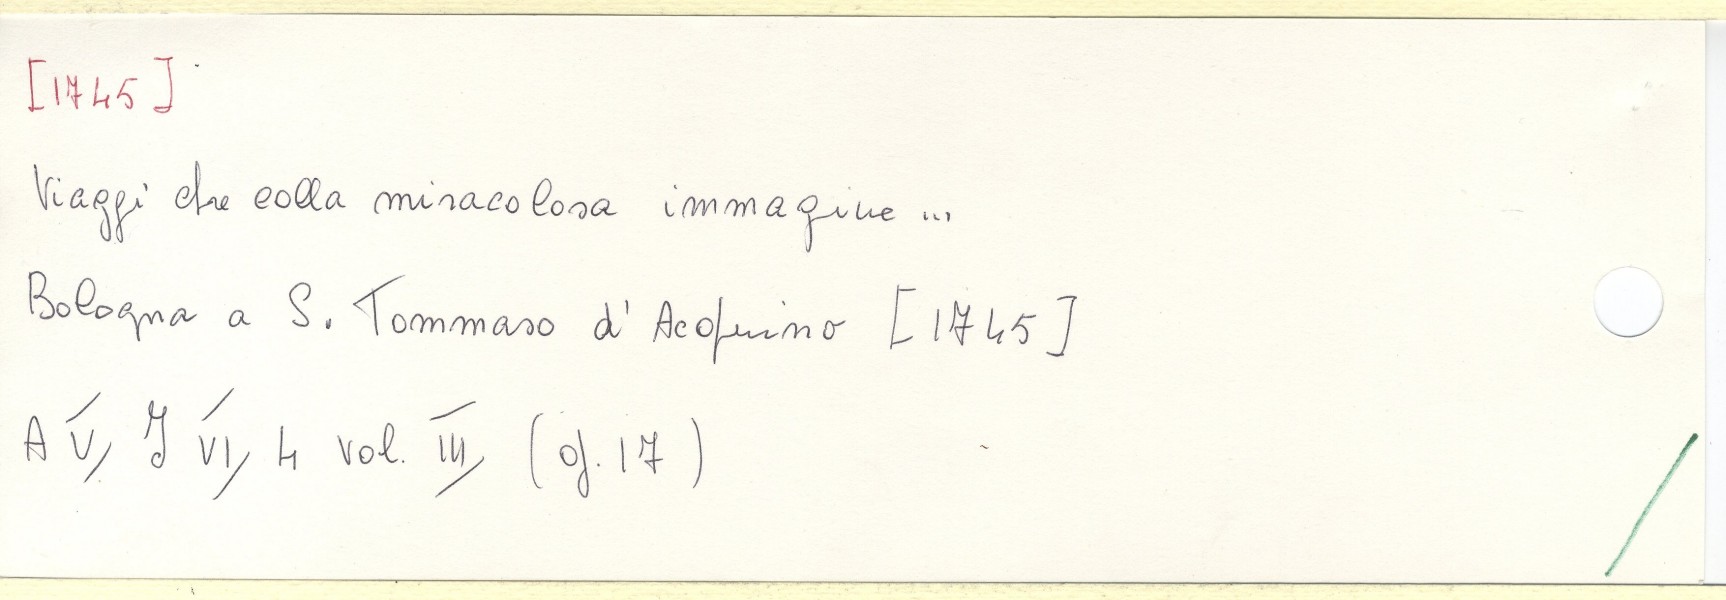 [1745]
Viaggi che colla miracolosa immagine ...
Bologna a S. Tommaso d' Acquino [1745]
A V, J VI, 4 vol. III, (of. 17)